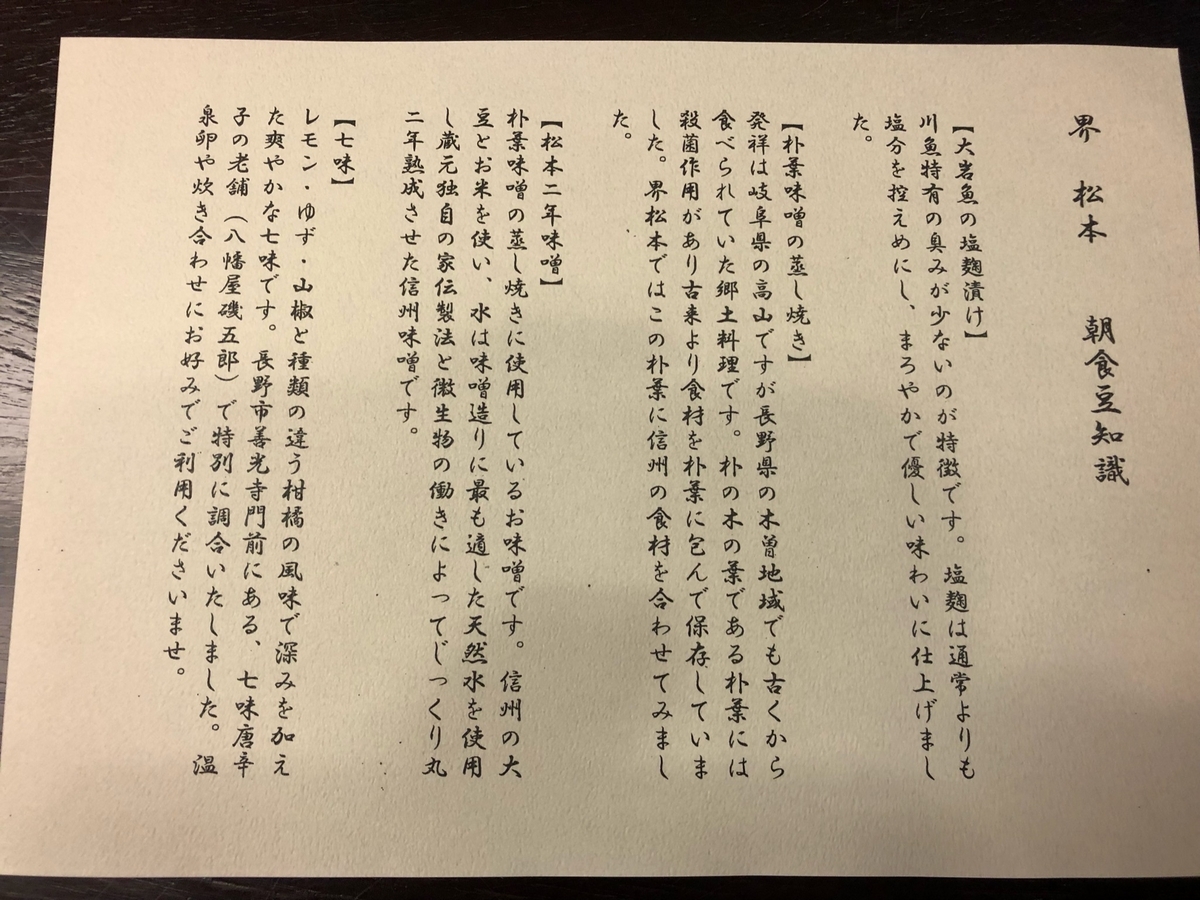 界 松本 朝食豆知識
【大岩魚の塩麹漬け】
川魚特有の臭みが少ないのが特徴です。塩麹は通常よりも
塩分を控えめにし、まろやかで優しい味わいに仕上げまし
た。
【朴葉味噌の蒸し焼き】
発祥は岐阜県の高山ですが長野県の木曽地域でも古くから
食べられていた郷土料理です。朴の木の葉である朴葉には
殺菌作用があり古来より食材を朴葉に包んで保存していま
した。界松本ではこの朴葉に信州の食材を合わせてみまし
た。
【松本二年味噌】
朴葉味噌の蒸し焼きに使用しているお味噌です。信州の大
豆とお米を使い、水は味噌造りに最も適した天然水を使用
し蔵元独自の家伝製法と微生物の働きによってじっくり丸
二年熟成させた信州味噌です。
【七味】
レモン・ゆず・山椒と種類の違う柑橘の風味で深みを加え
た爽やかな七味です。長野市善光寺門前にある、七味唐辛
子の老舗（八幡屋磯五郎）で特別に調合いたしました。温
泉卵や炊き合わせにお好みでご利用くださいませ。